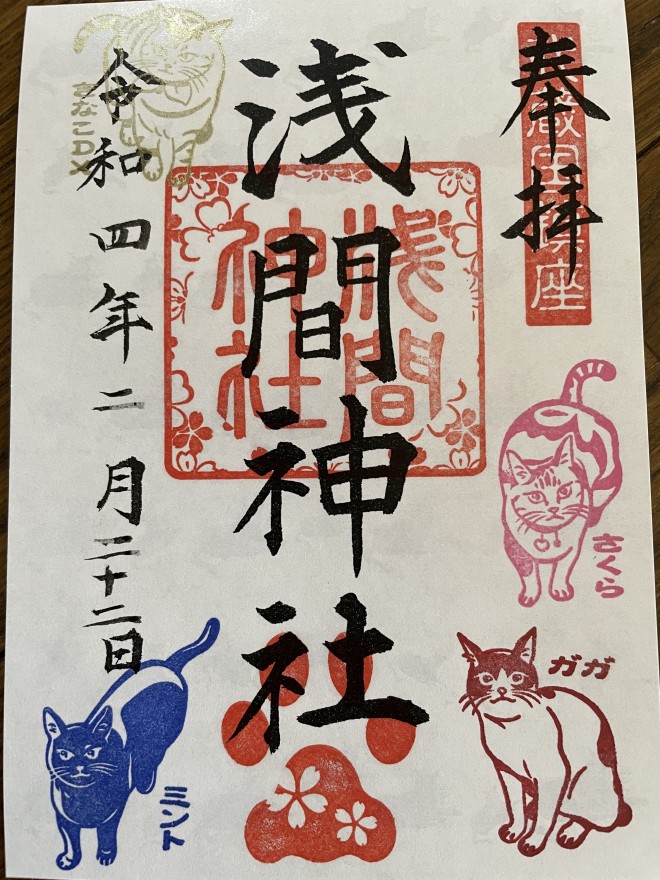 奉拝
浅間神社
浅間
神社
令和四年二月二十二日
きなこDX
さくら
ガガ
ミント